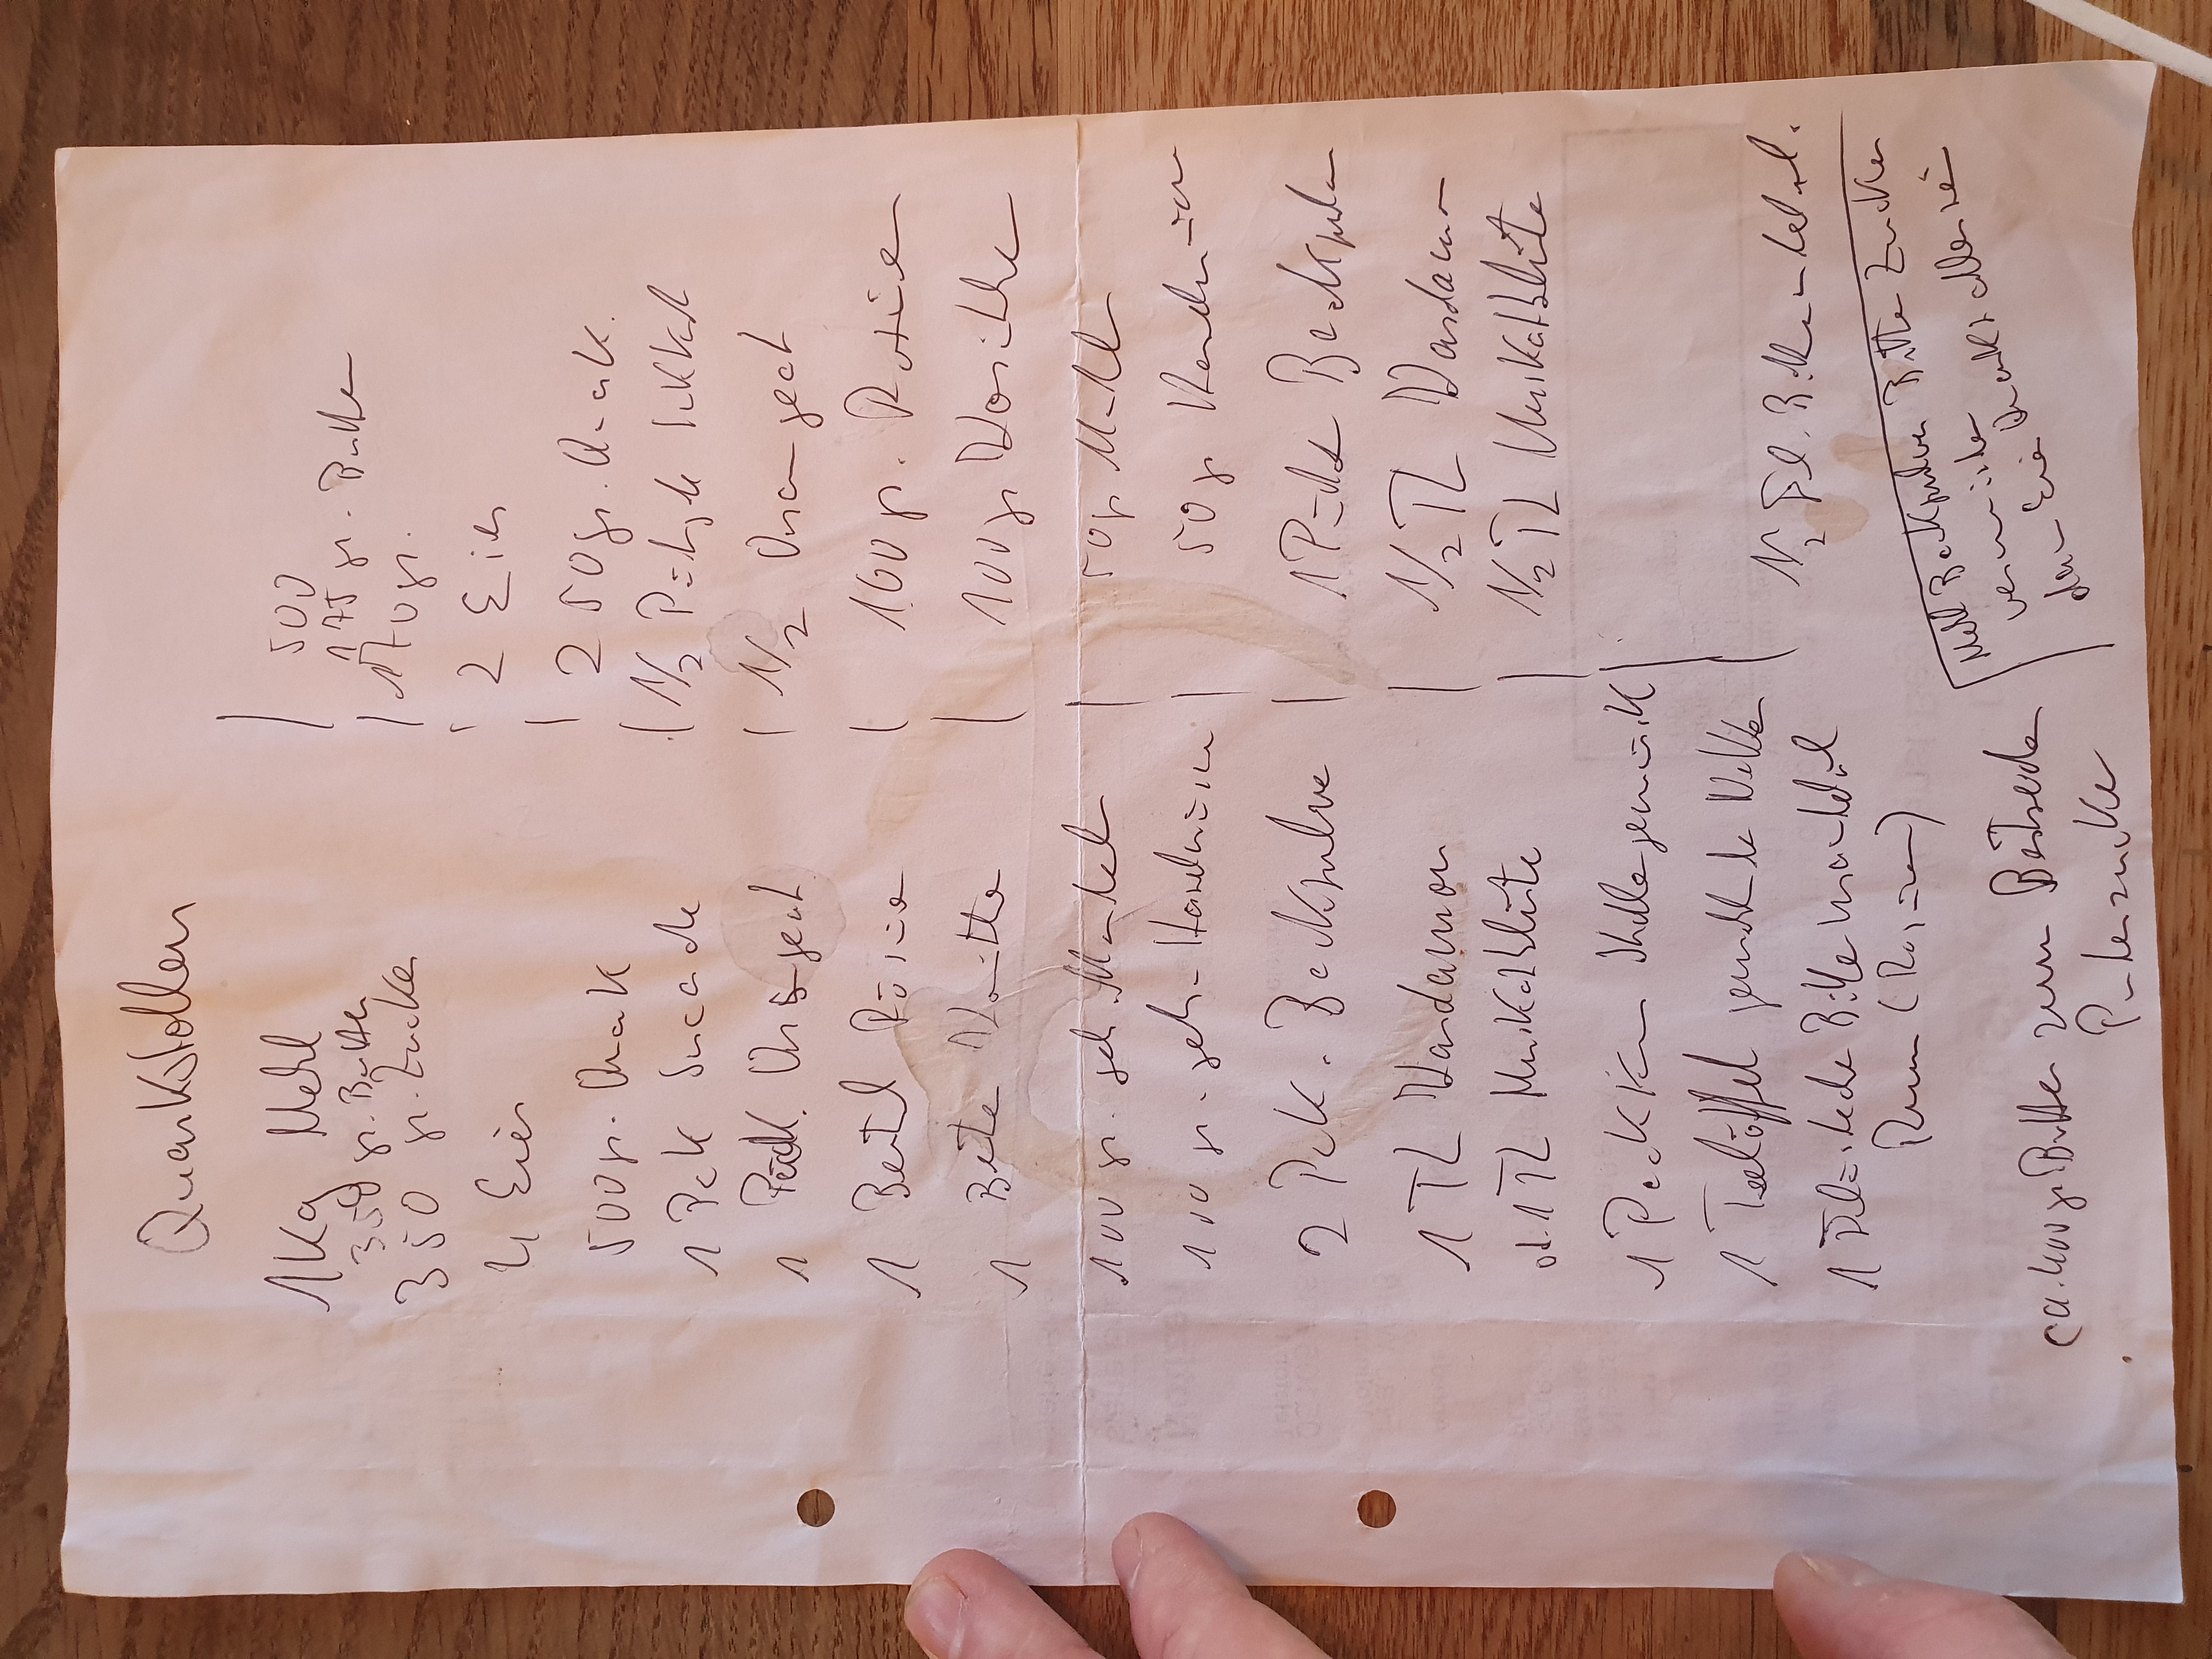 Quarkstollen
1 Kg Mehl | 500
350 gr. Butter 175 gr. Butter
350 gr. Zucker | 170 gr.
4 Eier 2 Eier
500 gr. Quark | 250 gr. Quark
1 Pck Sucade | 1/2 P
1 Päck. Orangeat | 1/2 Orangeat
1 Beutel Rosine | 100 gr. Rosine
1 Beute Korinthe | 100 gr Korinthe
100 gr. geh. Mandel | 50 gr Mandel
100 gr. geh. Haselnüsse | 50 gr Haselnüsse
2 Pck. Backpulver | 1 Päck Backpulv
1 TL Kardamon | 1/2 TL Kardamon
od. 1 TL Muskatblüte | 1/2 TL Muskatblüte
1 Päckchen Stollengewürz |
1 Teelöffel gemahlene Nelken |
1 Fläschchen Bittermandelöl 1/2 Fl. Bittermandel.
Rum (Rosinen)
Mehl Backpulver Butter Zucker
vermischen Quark
den Eier
ca. 400 gr Butter zum Bestreichen
Puderzucker